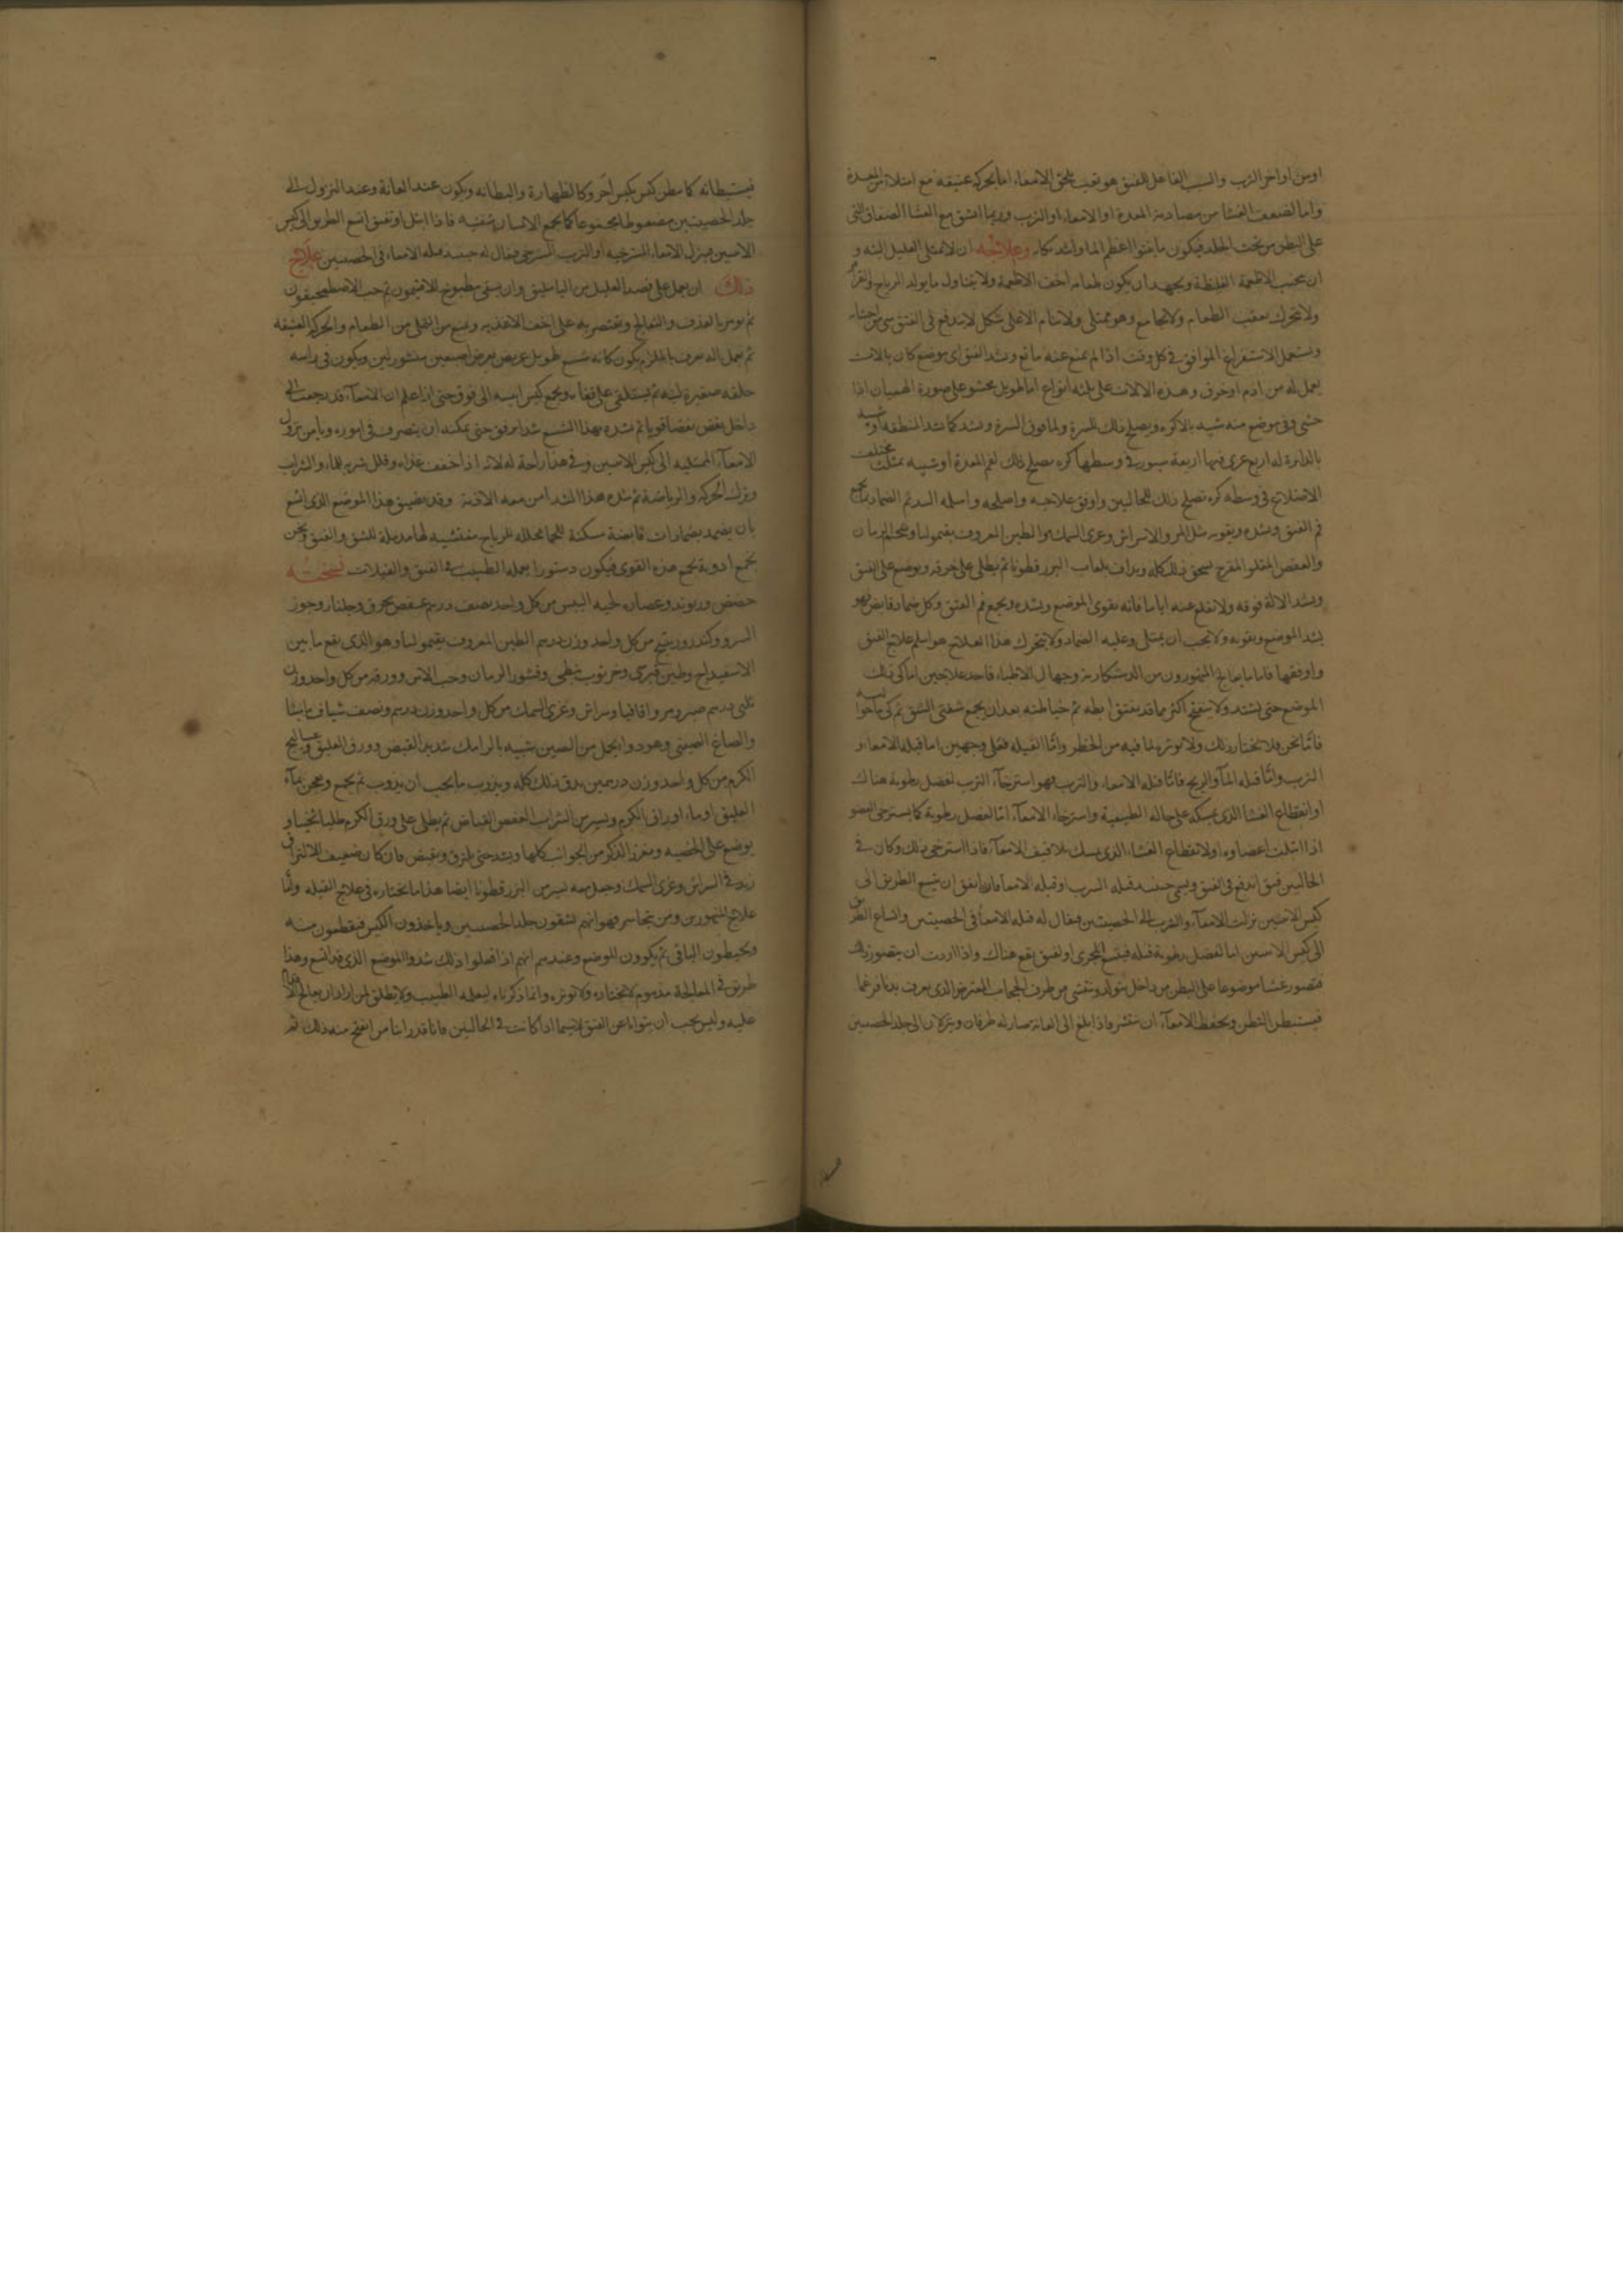 اومن اواخر الثرب والسبب الفاعل للفتق هو تعب يلحق الامعاء اما بحركة عنيفة مع امتلاء من المعدة
واما لضعف الغشا من مصادمة المعدة او الامعاء او الثرب وربما انشق مع الغشا الصفاق التى
على البطن من تحت الجلد فيكون ما يفتق اعظم الما واشد نكاء وعلاجه ان لا يمتلى العليل البتة و
ان يجتنب الاطعمة الغليظة ويجهد ان يكون طعامه اخف الاطعمة ولا يتناول ما يولد الرياح والقراقر
ولا يتحرك بعقب الطعام ولا يجامع وهو ممتلى ولا ينام الا على شكل لا يندفع فى الفتق شى من احشاه
ويستعمل الاستفراغ الموافق فى كل وقت اذا لم يمنع عنه مانع ويشد الفتق اى موضع كان بالات
يعمل له من ادم او خرق وهذه الالات على ثلثة انواع اما طويل محشو على صورة الهميان اذا
حشى وفى موضع منه شبيه بالاكرة ويصلح ذلك للسرة ولما فوق السرة ويشد كما يشد المنطقة او شبيه
بالدائرة له اربع عرى فيها اربعة سيور فى وسطها كره يصلح ذلك لفم المعدة او شبيه بمثلث مختلف
الاضلاع فى وسطه كره تصلح ذلك للحالبين واوفق علاجه واصلحه واسله الشد ثم الضمادات
فم الفتق ويشده ويقويه مثل المر والاسراش وغرى السمك والطين المعروف بقيموليا وشحم الرمان
والعفص المقلو المفرج يسحق ذلك كله ويداف بلعاب البزر قطونا ثم يطلى على خرقة ويوضع على الفتق
ويشد الالة فوقه ولا يقلع عنه اياما فانه يقوى الموضع ويشده ويجمع فم الفتق وكل ضماد قابض فهو
يشد الموضع ويقويه ولا يجب ان يمتلى وعليه الضماد ولا يتحرك هذا العلاج هو اسلم علاج الفتق
واوفقها فاما ما يعالج المتهورون من الدستكارية وجهال الاطباء فاحد علاجين اما كى ذلك
الموضع حتى يشتد ولا يتفتح اكثر مما قد يفتق ابطه ثم خياطته بعد ان يجمع شفتى الشق ثم كى ما حواليه
فاما نحن فلا نختار ذلك ولا نوثره لما فيه من الخطر واما القيلة فعلى وجهين اما قيلة الامعاء و
الثرب واما قيلة الماء والريح فاما قيلة الامعاء والثرب فهو استرخاء الثرب لفضل رطوبة هناك
او انقطاع الغشا الذى يمسكه على حاله الطبيعية واسترخاء الامعاء اما لفضل رطوبة كما يسترخى العضو
اذا ابتلت اعضاوه او لانقطاع الغشاء الذى يمسك تلافيف الامعاء فاذا استرخى ذلك وكان فى
الحالبين فتق اندفع فى الفتق ويسمى حينئذ قيلة الثرب او قيلة الامعاء فان اتفق ان يتسع الطريق الى
كيس الانثيين نزلت الامعاء والثرب الى الخصيتين فيقال له قيلة الامعاء فى الخصيتين واتساع الطريق
الى كيس الانثيين اما لفضل رطوبة قيلة فيتسع المجرى او لفتق يقع هناك واذا اردت ان يتصور ذلك
فتصور غشا موضوعا على البطن من داخل يتولد وينتشى من طرف الحجاب المعترض الذى يعرف بديافرغما
فيستبطن البطن ويحفظ الامعاء ان ينتشر واذا بلغ الى العانة صار له طرفان وينزلان الى جلد الخصيتين
فيستبطانه كما يبطن كيس بكيس اخر وكالظهارة والبطانة ويكون عند العانة وعند النزول الى
جلد الخصيتين مضغوطا مجموعا كما يجمع الانسان شفتيه فاذا ابتل او تفتق اتسع الطريق الى كيس
الانثيين فينزل الامعاء المسترخية او الثرب المسترخى فيقال له حينئذ قيلة الامعاء فى الخصيتين علاج
ذلك ان يعمل على فصد العليل من الباسليق وان يسقى مطبوخ الافتيمون ثم حب الاصطمخيقون
ثم يومر بالقذف والتعالج ويقتصر به على اخف الاغذيه ويمنع من التملى من الطعام والحركة العنيفة
ثم يعمل اله يعرف بالحلزام يكون كانه شسع طويل عريض بعرض اصبعين منشورتين ويكون فى راسه
حلقة صغيرة لينة ثم يستلقى على قفاه ويجمع كيس انثييه الى فوق حتى اذا علم ان الامعاء قد رجعت الى
داخل يغض بعضا قويا ثم شده بهذا الشسع شدا برفق حتى يمكنه ان يتصرف فى اموره ويامن نزول
الامعاء الممتليه الى كيس الانثيين وفى هذا راحة له لانه اذا خفف غذاه وقلل شربه للماء والشراب
وترك الحركة والرياضة ثم شده هذا الشد امن معه الاذية وقد يضيق هذا الموضع الذى اتسع
بان يضمد بضمادات قابضة مسكنة للحما محللة للرياح منفشيه لها مدملة للشق والفتق ونحن
نجمع ادوية تجمع هذه القوى فيكون دستورا يعمله الطبيب فى الفتق والقيلات نسخته
حضض وريوند وعصارة لحية التيس من كل واحد نصف درهم عفص محرق وجلنار وجوز
السرو وكندر وريتنج من كل واحد وزن درهم الطين المعروف بقيموليا وهو الذى يقع ما بين
الاسفيداج وطين قبرسى وخرنوب نبطى وقشور الرمان وحب الاس وورقه من كل واحد وزن
ثلثى درهم صبر ومر واقاقيا وسراش وغرى السمك من كل واحد وزن درهم ونصف شياف ماميثا
والصاغ الصينى وهو دوا يجلب من الصين شبيه بالرامك شديد القبض وورق العليق وعساليج
الكرم من كل واحد وزن درهمين يدق ذلك كله ويذوب ما يجب ان يذوب ثم يجمع ويعجن بماء
العليق او ماء اوراق الكرم ويسير من الشراب العفص القباض ثم يطلى على ورق الكرم طليا ثخينا و
يوضع على الخصيه ومغرز الذكر من الجوانب كلها ويشد حتى يلزق ويقبض فان كان ضعيف الالتزاق
زيد فى السراش وغرى السمك وجعل معه يسير من البزر قطونا ايضا هذا ما نختاره فى علاج القيلة واما
علاج المتهورين ومن يتجاسر فهو انهم يشقون جلد الخصيتين وياخذون الكيس فيقطعون منه
ويخيطون الباقى ثم يكوون الموضع وعندهم انهم اذا فعلوا ذلك شدوا الموضع الذى قد اتسع وهذا
طريق فى المعالجة مذموم لا نختاره ولا نوثره وانما ذكرناه ليعلمه الطبيب ولا يطلق لمن اراد ان يعالج
عليه وليس يجب ان يتوانا عن الفتق لاسيما اذا كانت فى الحالبين فانا قد راينا من انفتح منه ذلك ثم